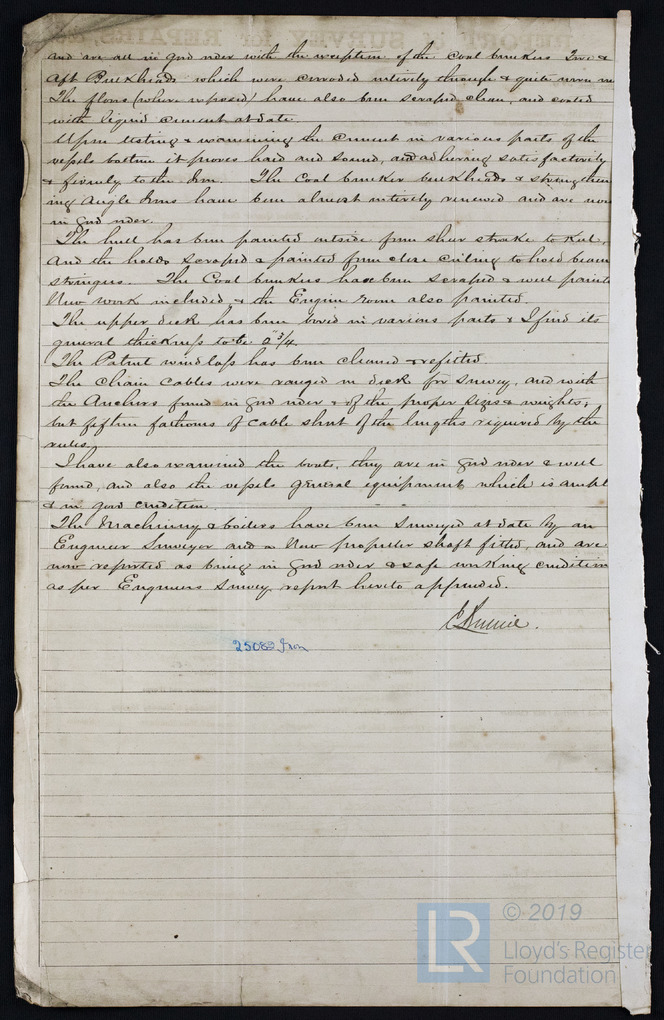 and are all in good order with the exception of the Coal bunkers Fore &
aft Bulkheads which were corroded entirely through & quite worn
The floors (where exposed) have also been scraped clean, and coated
with liquid cement at date.
Upon testing & examining the cement in various parts of the
vessels bottom it proves hard and sound, and adhering satisfactorily
& firmly to the Iron. The Coal bunker bulkheads & strengthen
ing Angle Irons have been almost entirely renewed and are now
in good order.
The hull has been painted outside from sheer strake to Keel,
and the holds scraped & painted from close ceiling to hold beam
stringers. The Coal bunkers have been scraped & well painted
New work included & the Engine room also painted.
The upper deck has been bored in various parts & I find its
general thickness to be 2"3/4.
The Patent windlass has been cleaned & refitted.
The chain cables were ranged on deck for survey, and with
the Anchors found in good order & of the proper sizes & weights,
but fifteen fathoms of cable short of the lengths required by the
rules.
I have also examined the boats, they are in good order & well
found, and also the vessels general equipment which is ample
& in good condition.
The Machinery & boilers have been surveyed at date by an
Engineer Surveyor and a New propeller shaft fitted, and are
now reported as being in good order & safe working condition
as per Engineers survey report hereto appended.
25082 Iron
LR © 2019
Lloyd's Register
Foundation